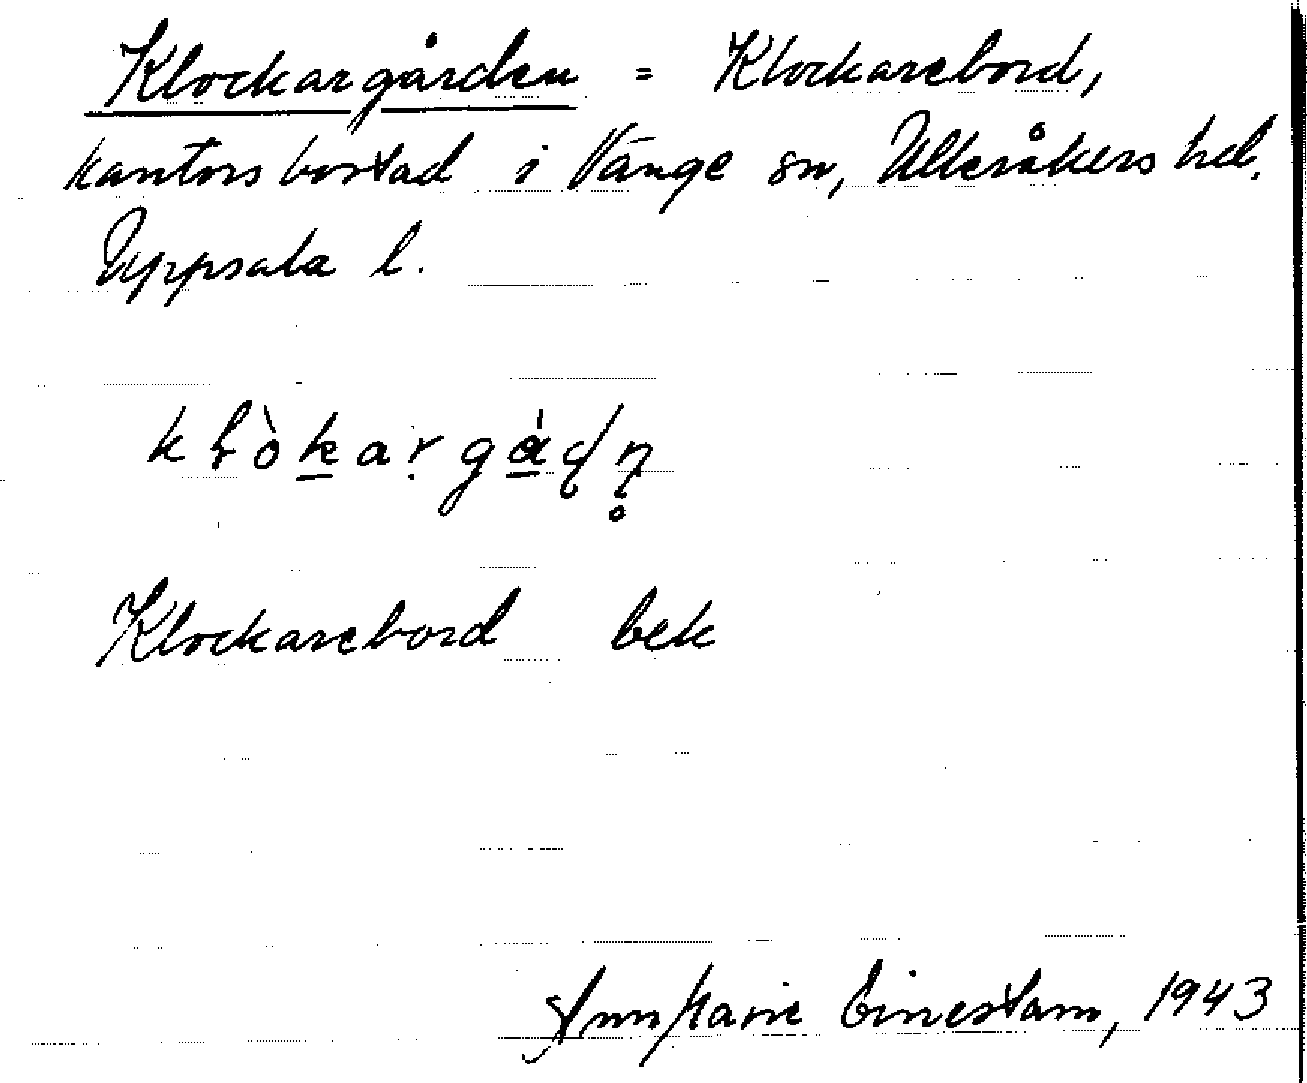 Klockargården = Klockarebord,
kantorsbostad i Vänge sn, Ulleråkers hd.
Uppsala l.
kɽòkarg̀åɖn̥
Klockarebord bek
AnnMarie Einestam, 1943